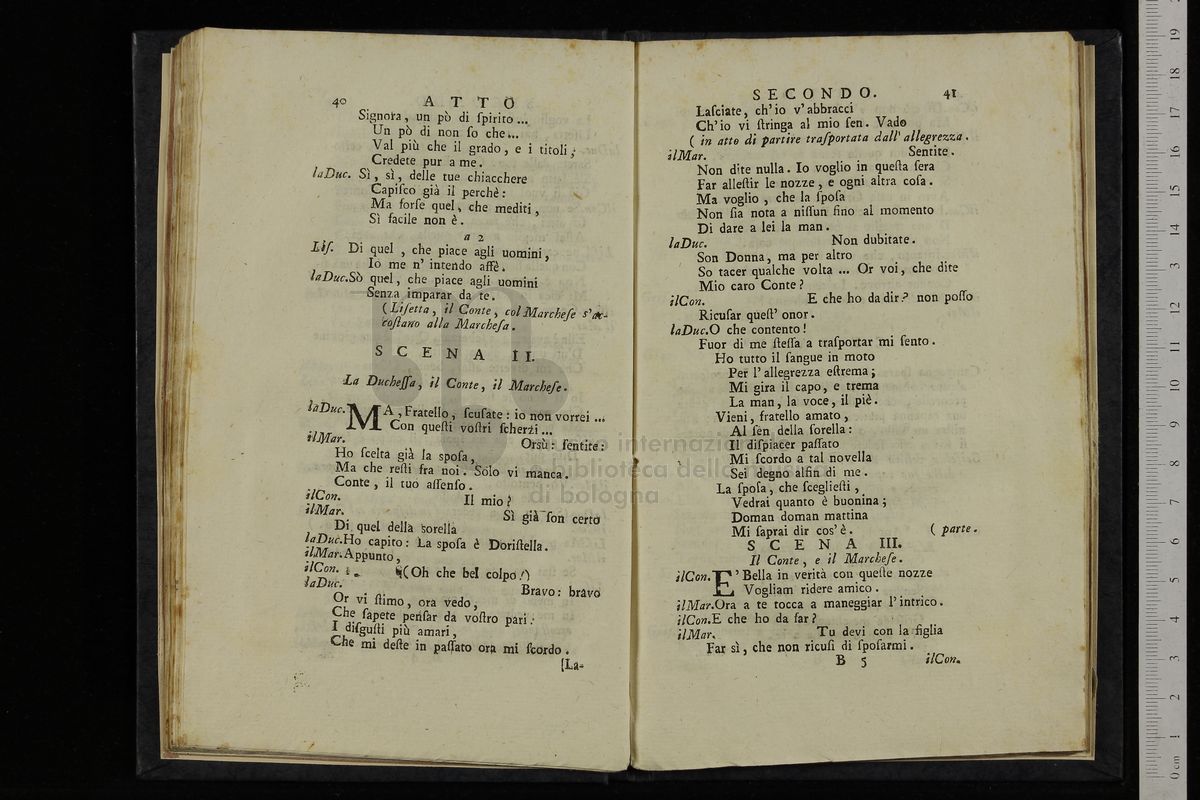 40 ATTO
Signora, un pò di ſpirito...
Un pò di non ſo che...
Val più che il grado, e i titoli;
Credete pur a me.
laDuc. Sì, sì, delle tue chiacchere
Capiſco già il perchè:
Ma forſe quel, che mediti,
Sì facile non è.
a 2
Liſ. Di quel, che piace agli uomini,
Io me n' intendo affè.
laDuc. Sò quel, che piace agli uomini
Senza imparar da te.
(Liſetta, il Conte, col Marcheſe s'ac-
coſtano alla Marcheſa.
SCENA II.
La Ducheſſa, il Conte, il Marcheſe.
laDuc. MA, Fratello, ſcuſate: io non vorrei...
Con queſti voſtri ſcherzi...
ilMar. Orsù: ſentite:
Ho ſcelta già la spoſa,
Ma che reſti fra noi. Solo vi manca.
Conte, il tuo aſſenſo.
ilCon. Il mio?
ilMar. Sì già ſon certo
Di quel della sorella
laDuc. Ho capito: La spoſa è Doriſtella.
ilMar. Appunto,
ilCon. (Oh che bel colpo!)
laDuc. Bravo: bravo
Or vi ſtimo, ora vedo,
Che ſapete penſar da voſtro pari:
I diſguſti più amari,
Che mi deſte in paſſato ora mi ſcordo.
[La-
SECONDO. 41
Laſciate, ch'io v'abbracci
Ch'io vi ſtringa al mio ſen. Vado
( in atto di partire traſportata dall' allegrezza.
ilMar. Sentite.
Non dite nulla. Io voglio in queſta ſera
Far alleſtir le nozze, e ogni altra coſa.
Ma voglio, che la ſpoſa
Non ſia nota a niſſun fino al momento
Di dare a lei la man.
laDuc. Non dubitate.
Son Donna, ma per altro
So tacer qualche volta ... Or voi, che dite
Mio caro Conte?
ilCon. E che ho da dir? non poſſo
Ricuſar queſt' onor.
laDuc. O che contento!
Fuor di me ſteſſa a traſportar mi ſento.
Ho tutto il ſangue in moto
Per l'allegrezza eſtrema;
Mi gira il capo, e trema
La man, la voce, il piè.
Vieni, fratello amato,
Al ſen della ſorella:
Il diſpiacer paſſato
Mi ſcordo a tal novella
Sei degno alfin di me.
La ſpoſa, che ſcegliesti,
Vedrai quanto è buonina;
Doman doman mattina
Mi ſaprai dir cos'è. ( parte.
SCENA III.
Il Conte, e il Marcheſe.
ilCon. E' Bella in verità con queſte nozze
Vogliam ridere amico.
ilMar. Ora a te tocca a maneggiar l'intrico.
ilCon. E che ho da far?
ilMar. Tu devi con la figlia
Far sì, che non ricuſi di ſpoſarmi.
B 5 ilCon.
museo internazionale
e biblioteca della musica
di bologna